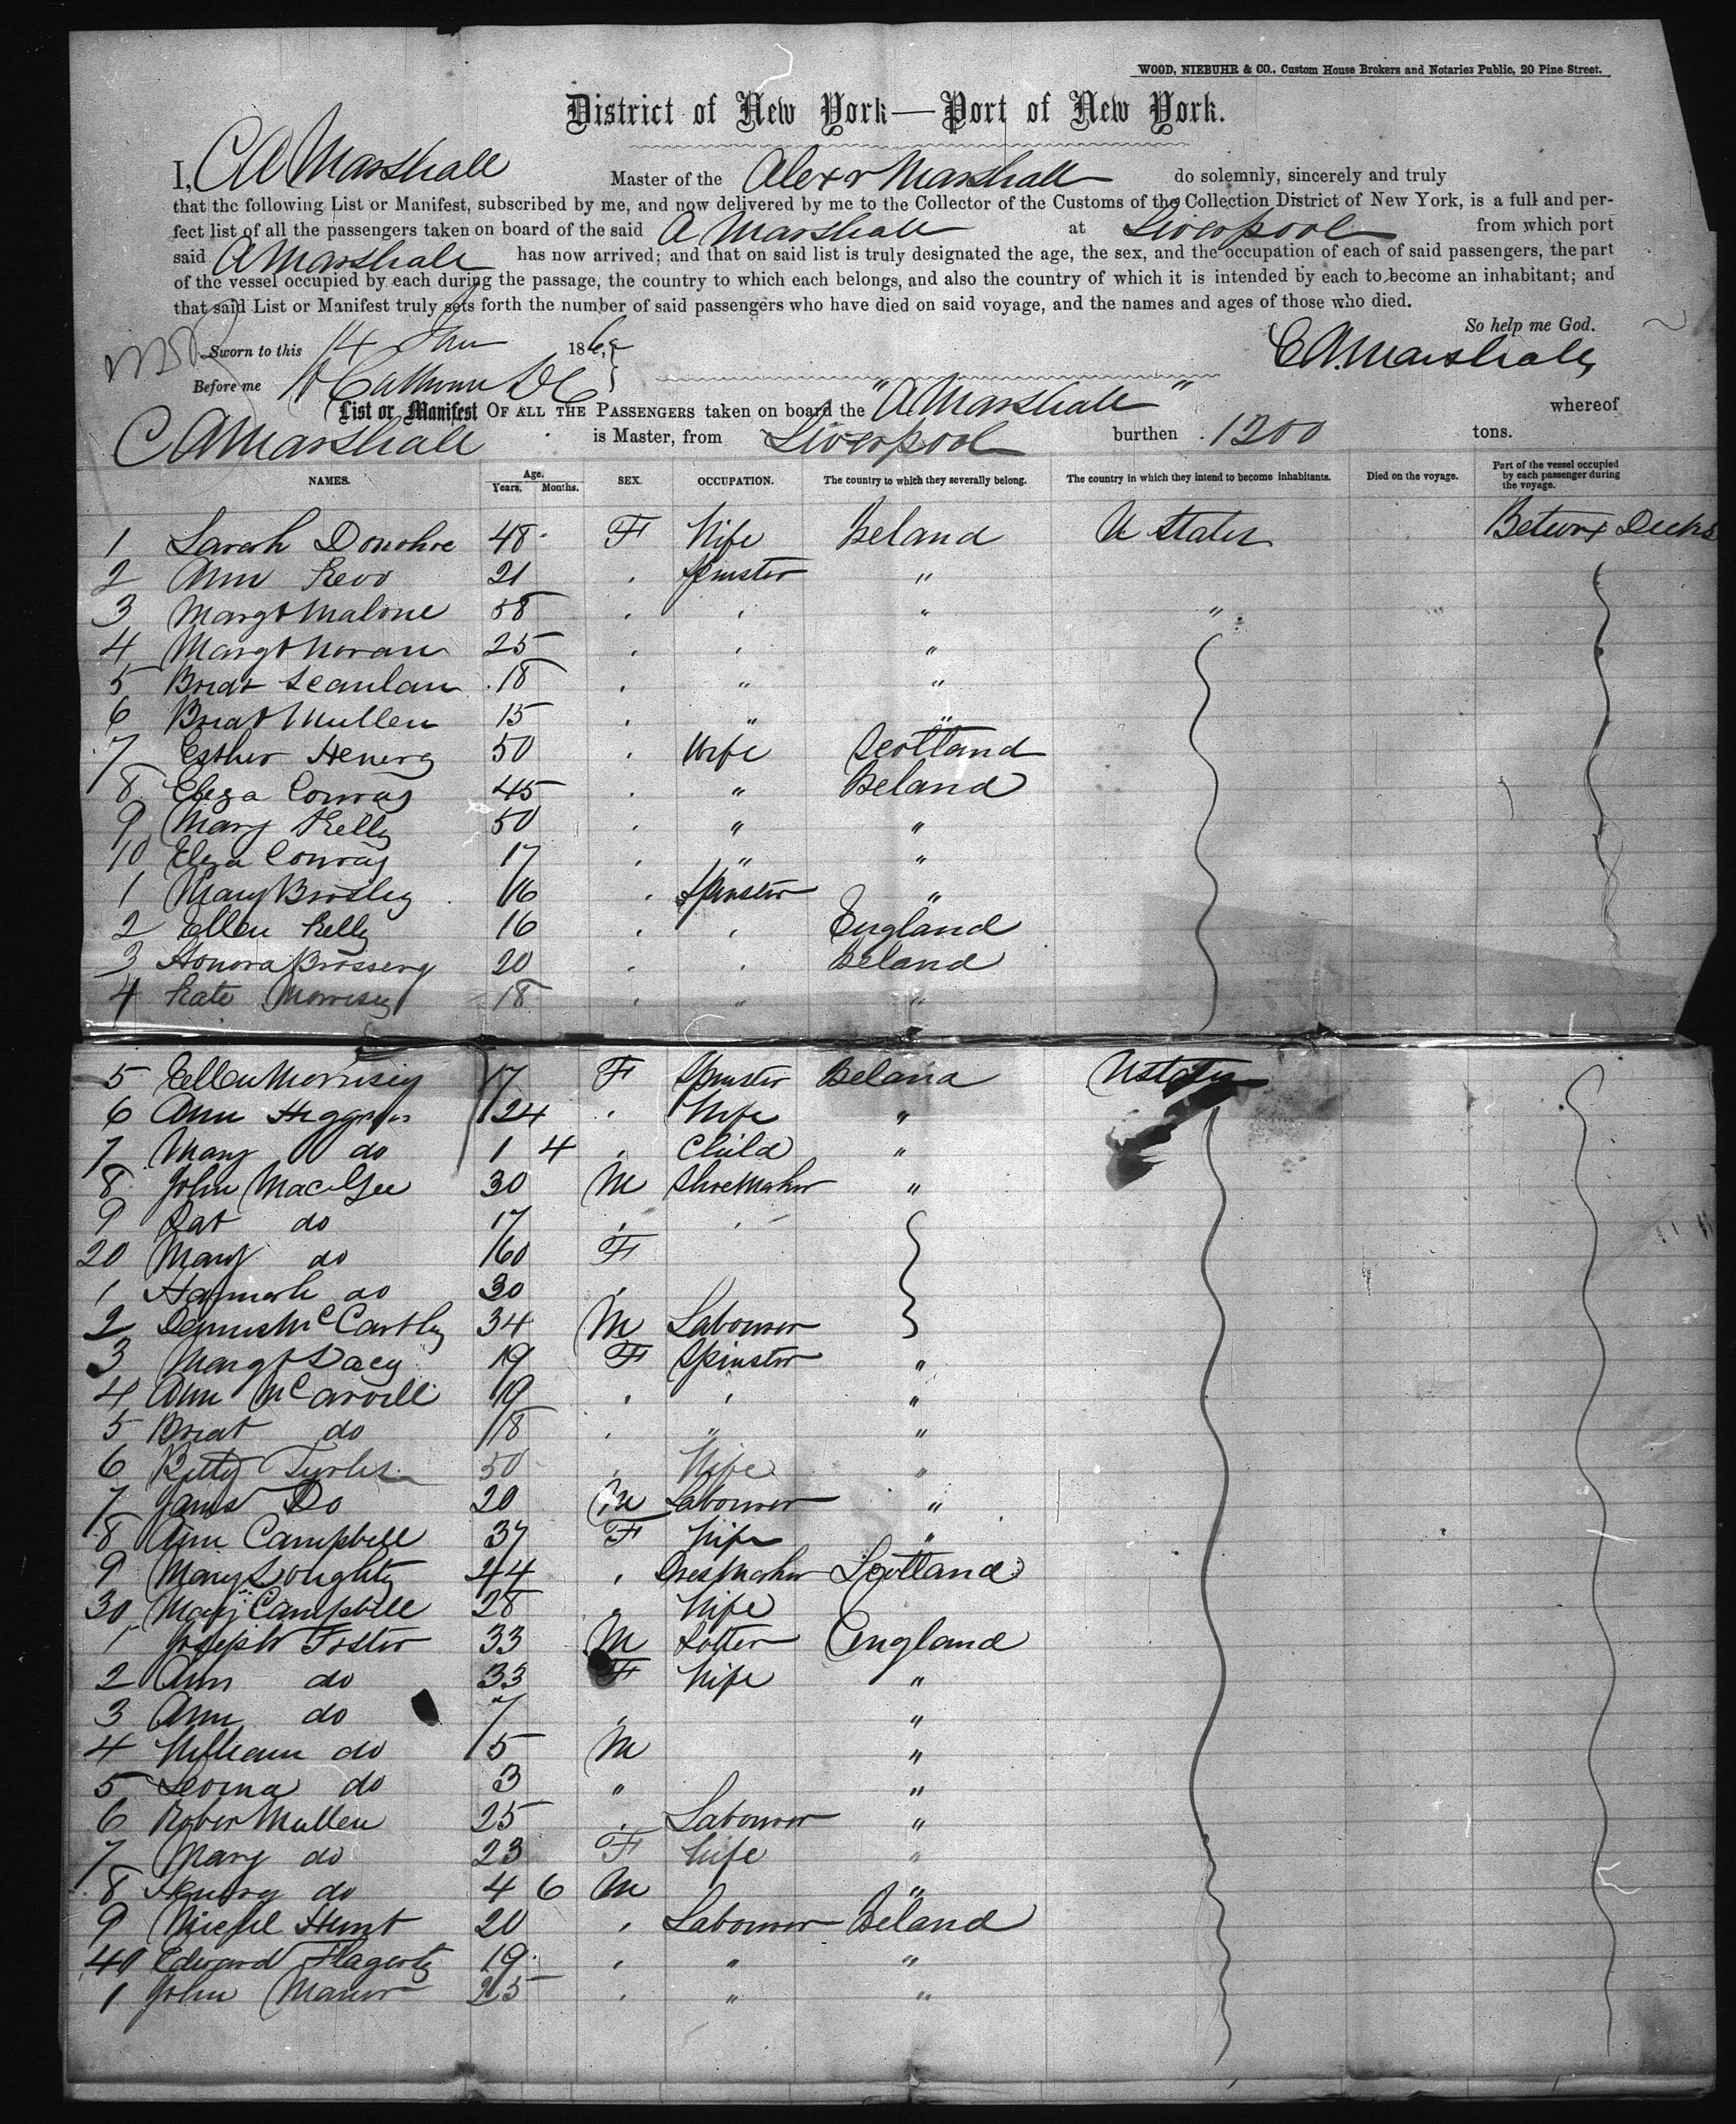 WOOD, NIEBUHR & CO., Custom House Brokers and Notaries Public, 20 Pine Street.
District of New York—Port of New York.
I, C A Marshall Master of the Alexr Marshall do solemnly, sincerely and truly
that the following List or Manifest, subscribed by me, and now delivered by me to the Collector of the Customs of the Collection District of New York, is a full and per-
fect list of all the passengers taken on board of the said A Marshall at Liverpool from which port
said A Marshall has now arrived; and that on said list is truly designated the age, the sex, and the occupation of each of said passengers, the part
of the vessel occupied by each during the passage, the country to which each belongs, and also the country of which it is intended by each to become an inhabitant; and
that said List or Manifest truly sets forth the number of said passengers who have died on said voyage, and the names and ages of those who died.
So help me God.
Sworn to this 14 186
C A Marshall
Before me
List or Manifest OF ALL THE PASSENGERS taken on board the "A Marshall" whereof
C A Marshall is Master, from Liverpool burthen 1200 tons.
NAMES. Age. Years. Months. SEX. OCCUPATION. The country to which they severally belong. The country in which they intend to become inhabitants. Died on the voyage. Part of the vessel occupied by each passenger during the voyage.
1 Sarah Donohoe 48 F Wife Ireland U States Betwixt Decks
2 Ann 21 Spinster "
3 Margt Malone 58 " "
4 Margt Moran 25 "
5 Bridt Scanlan 18 " "
6 Bridt Mullen 15 " "
7 Esther Henery 50 Wife Scotland
8 Eliza Conway 45 " Ireland
9 Mary Kelly 50 " "
10 Eliza Conway 17 " "
1 Mary Brosley 16 Spinster "
2 Ellen Kelly 16 England
3 Honora 20 Ireland
4 Kate Morrisey 18 " "
5 Ellen Morrisey 17 F Spinster Ireland U States
6 Ann Higgins 24 Wife "
7 Mary do 1 4 Child "
8 John MacGee 30 M Shoemaker "
9 Pat do 17
20 Mary do 60 F
1 Hannah do 30
2 Dennis McCarthy 34 M Labourer
3 Margt Dacy 19 F Spinster "
4 Ann McArvill 19 "
5 Bridt do 18 " "
6 Kitty 50 Wife "
7 James Do 20 M Labourer "
8 Ann Campbell 37 F Wife "
9 Mary Doughty 44 Dressmaker Scotland
30 Mary Campbell 28 " Wife
1 Joseph Foster 33 M Potter England
2 Ann do 33 F Wife "
3 Ann do 7 "
4 William do 5 M "
5 do 3 " "
6 Rober Mullen 25 Labourer "
7 Mary do 23 F Wife "
8 Henry do 4 6 M "
9 Michl Hunt 20 Labourer Ireland
40 Edward Flagerty 19 " "
1 John 25 " "